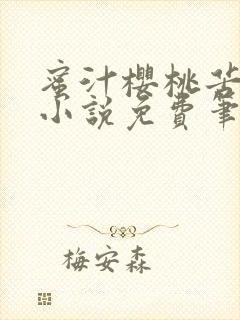 蜜汁櫻桃苦
小說免費筆
梅安森